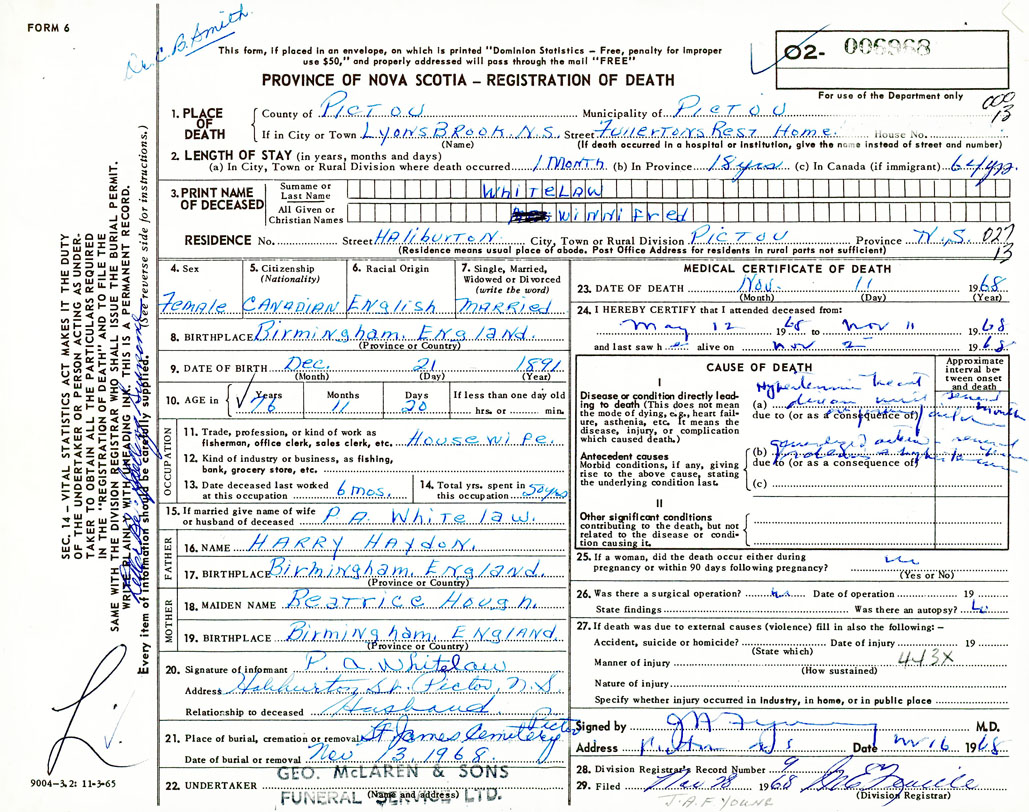 FORM 6
Dr. C. B. Smith
This form, if placed in an envelope, on which is printed "Dominion Statistics – Free, penalty for improper
use $50," and properly addressed will pass through the mail "FREE"
PROVINCE OF NOVA SCOTIA – REGISTRATION OF DEATH
02- 006968
For use of the Department only
003
13
1. PLACE OF DEATH
County of Pictou Municipality of Pictou
If in City or Town Lyons Brook N.S. Street Fullertons Rest Home House No.
(Name) (If death occurred in a hospital or institution, give the name instead of street and number)
2. LENGTH OF STAY (in years, months and days)
(a) In City, Town or Rural Division where death occurred 1 Month (b) In Province 18 yrs (c) In Canada (if immigrant) 64 yrs.
3. PRINT NAME OF DECEASED
Surname or Last Name WHITELAW
All Given or Christian Names Winnifred
RESIDENCE No. Street Haliburton City, Town or Rural Division Pictou Province N.S. 027
13
(Residence means usual place of abode. Post Office Address for residents in rural parts not sufficient)
4. Sex Female
5. Citizenship (Nationality) Canadian
6. Racial Origin English
7. Single, Married, Widowed or Divorced (write the word) Married
8. BIRTHPLACE Birmingham, England.
(Province or Country)
9. DATE OF BIRTH Dec. 21 1891
(Month) (Day) (Year)
10. AGE in Years 76 Months 11 Days 20 If less than one day old hrs. or min.
OCCUPATION
11. Trade, profession, or kind of work as fisherman, office clerk, sales clerk, etc. Housewife.
12. Kind of industry or business, as fishing, bank, grocery store, etc.
13. Date deceased last worked at this occupation 6 mos.
14. Total yrs. spent in this occupation 50 yrs
15. If married give name of wife or husband of deceased P. A. Whitelaw.
FATHER
16. NAME Harry Haydon.
17. BIRTHPLACE Birmingham, England.
(Province or Country)
MOTHER
18. MAIDEN NAME Beatrice Hough.
19. BIRTHPLACE Birmingham, England
(Province or Country)
20. Signature of informant P. A. Whitelaw
Address Haliburton St. Pictou, N.S.
Relationship to deceased Husband
21. Place of burial, cremation or removal St James Cemetery Pictou
Date of burial or removal Nov 3, 1968
22. UNDERTAKER GEO. McLAREN & SONS
(Name and address)
FUNERAL SERVICE LTD.
MEDICAL CERTIFICATE OF DEATH
23. DATE OF DEATH Nov. 11 1968
(Month) (Day) (Year)
24. I HEREBY CERTIFY that I attended deceased from:
May 12 1968 to Nov 11 1968
and last saw h alive on Nov 2 1968
CAUSE OF DEATH
Approximate interval between onset and death
I
Disease or condition directly leading to death (This does not mean the mode of dying, e.g., heart failure, asthenia, etc. It means the disease, injury, or complication which caused death.)
(a) Hypertensive heart
due to (or as a consequence of)
Antecedent causes
Morbid conditions, if any, giving rise to the above cause, stating the underlying condition last.
(b) generalized
due to (or as a consequence of)
(c)
II
Other significant conditions contributing to the death, but not related to the disease or condition causing it.
25. If a woman, did the death occur either during
pregnancy or within 90 days following pregnancy? no
(Yes or No)
26. Was there a surgical operation? no Date of operation 19
State findings Was there an autopsy?
27. If death was due to external causes (violence) fill in also the following: –
Accident, suicide or homicide? Date of injury 19
(State which)
443X
Manner of injury
(How sustained)
Nature of injury
Specify whether injury occurred in industry, in home, or in public place
Signed by M.D.
Address Date Nov 16 1968
28. Division Registrar's Record Number 9
29. Filed Nov 28 1968
(Division Registrar)
J.A.F. YOUNG
SEC. 14 – VITAL STATISTICS ACT MAKES IT THE DUTY
OF THE UNDERTAKER OR PERSON ACTING AS UNDER-
TAKER TO OBTAIN ALL THE PARTICULARS REQUIRED
IN THE "REGISTRATION OF DEATH" AND TO FILE THE
SAME WITH THE DIVISION REGISTRAR WHO SHALL ISSUE THE BURIAL PERMIT.
WRITE PLAINLY WITH UNFADING INK. THIS IS A PERMANENT RECORD.
Every item of information should be carefully supplied. (See reverse side for instructions.)
9004–3.2: 11-3-65